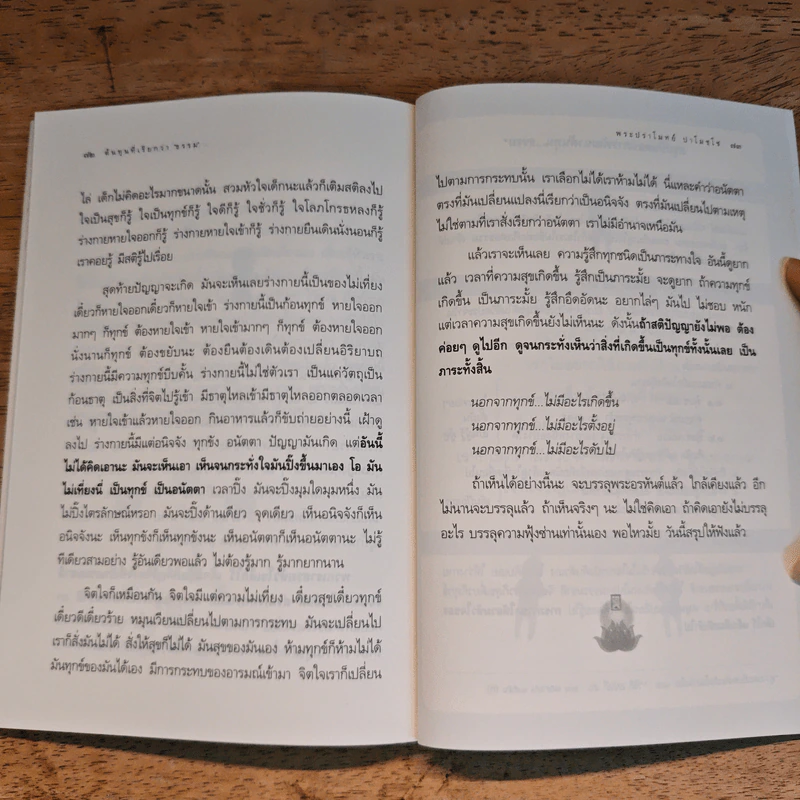 ๗๒ ต้นทุนที่เรียกว่า "ธรรม"
ไล่ เด็กไม่คิดอะไรมากขนาดนั้น สวมหัวใจเด็กนะแล้วก็เติมสติลงไป
ใจเป็นสุขก็รู้ ใจเป็นทุกข์ก็รู้ ใจดีก็รู้ ใจชั่วก็รู้ ใจโลภโกรธหลงก็รู้
ร่างกายหายใจออกก็รู้ ร่างกายหายใจเข้าก็รู้ ร่างกายยืนเดินนั่งนอนก็รู้
เราคอยรู้ มีสติรู้ไปเรื่อย
สุดท้ายปัญญาจะเกิด มันจะเห็นเลยร่างกายนี้เป็นของไม่เที่ยง
เดี๋ยวก็หายใจออกเดี๋ยวก็หายใจเข้า ร่างกายนี้เป็นก้อนทุกข์ หายใจออก
มากๆ ก็ทุกข์ ต้องหายใจเข้า หายใจเข้ามากๆ ก็ทุกข์ ต้องหายใจออก
นั่งนานก็ทุกข์ ต้องขยับนะ ต้องยืนต้องเดินต้องเปลี่ยนอิริยาบถ
ร่างกายนี้มีความทุกข์บีบคั้น ร่างกายนี้ไม่ใช่ตัวเรา เป็นแค่วัตถุเป็น
ก้อนธาตุ เป็นสิ่งที่จิตไปรู้เข้า มีธาตุไหลเข้ามีธาตุไหลออกตลอดเวลา
เช่น หายใจเข้าแล้วหายใจออก กินอาหารแล้วก็ขับถ่ายอย่างนี้ เฝ้าดู
ลงไป ร่างกายนี้มีแต่อนิจจัง ทุกขัง อนัตตา ปัญญามันเกิด แต่อันนี้
ไม่ได้คิดเอานะ มันจะเห็นเอา เห็นจนกระทั่งใจมันปิ๊งขึ้นมาเอง โอ มัน
ไม่เที่ยงนี่ เป็นทุกข์ เป็นอนัตตา เวลาปิ๊ง มันจะปิ๊งมุมใดมุมหนึ่ง มัน
ไม่ปิ๊งไตรลักษณ์หรอก มันจะปิ๊งด้านเดียว จุดเดียว เห็นอนิจจังก็เห็น
อนิจจังนะ เห็นทุกขังก็เห็นทุกขังนะ เห็นอนัตตาก็เห็นอนัตตานะ ไม่รู้
ทีเดียวสามอย่าง รู้อันเดียวพอแล้ว ไม่ต้องรู้มาก รู้มากยากนาน
จิตใจก็เหมือนกัน จิตใจมีแต่ความไม่เที่ยง เดี๋ยวสุขเดี๋ยวทุกข์
เดี๋ยวดีเดี๋ยวร้าย หมุนเวียนเปลี่ยนไปตามการกระทบ มันจะเปลี่ยนไป
เราก็สั่งมันไม่ได้ สั่งให้สุขก็ไม่ได้ มันสุขของมันเอง ห้ามทุกข์ก็ห้ามไม่ได้
มันทุกข์ของมันได้เอง มีการกระทบของอารมณ์เข้ามา จิตใจเราก็เปลี่ยน
พระปราโมทย์ ปาโมชฺโช ๗๓
ไปตามการกระทบนั้น เราเลือกไม่ได้เราห้ามไม่ได้ นี่แหละคำว่าอนัตตา
ตรงที่มันเปลี่ยนแปลงนี่เรียกว่าเป็นอนิจจัง ตรงที่มันเปลี่ยนไปตามเหตุ
ไม่ใช่ตามที่เราสั่งเรียกว่าอนัตตา เราไม่มีอำนาจเหนือมัน
แล้วเราจะเห็นเลย ความรู้สึกทุกชนิดเป็นภาระทางใจ อันนี้ดูยาก
แล้ว เวลาที่ความสุขเกิดขึ้น รู้สึกเป็นภาระมั้ย จะดูยาก ถ้าความทุกข์
เกิดขึ้น เป็นภาระมั้ย รู้สึกอึดอัดนะ อยากไล่ๆ มันไป ไม่ชอบ หนัก
แต่เวลาความสุขเกิดขึ้นยังไม่เห็นนะ ดังนั้นถ้าสติปัญญายังไม่พอ ต้อง
ค่อยๆ ดูไปอีก ดูจนกระทั่งเห็นว่าสิ่งที่เกิดขึ้นเป็นทุกข์ทั้งนั้นเลย เป็น
ภาระทั้งสิ้น
นอกจากทุกข์...ไม่มีอะไรเกิดขึ้น
นอกจากทุกข์...ไม่มีอะไรตั้งอยู่
นอกจากทุกข์...ไม่มีอะไรดับไป
ถ้าเห็นได้อย่างนี้นะ จะบรรลุพระอรหันต์แล้ว ใกล้เคียงแล้ว อีก
ไม่นานจะบรรลุแล้ว ถ้าเห็นจริงๆ นะ ไม่ใช่คิดเอา ถ้าคิดเอายังไม่บรรลุ
อะไร บรรลุความฟุ้งซ่านเท่านั้นเอง พอไหวมั้ย วันนี้สรุปให้ฟังแล้ว